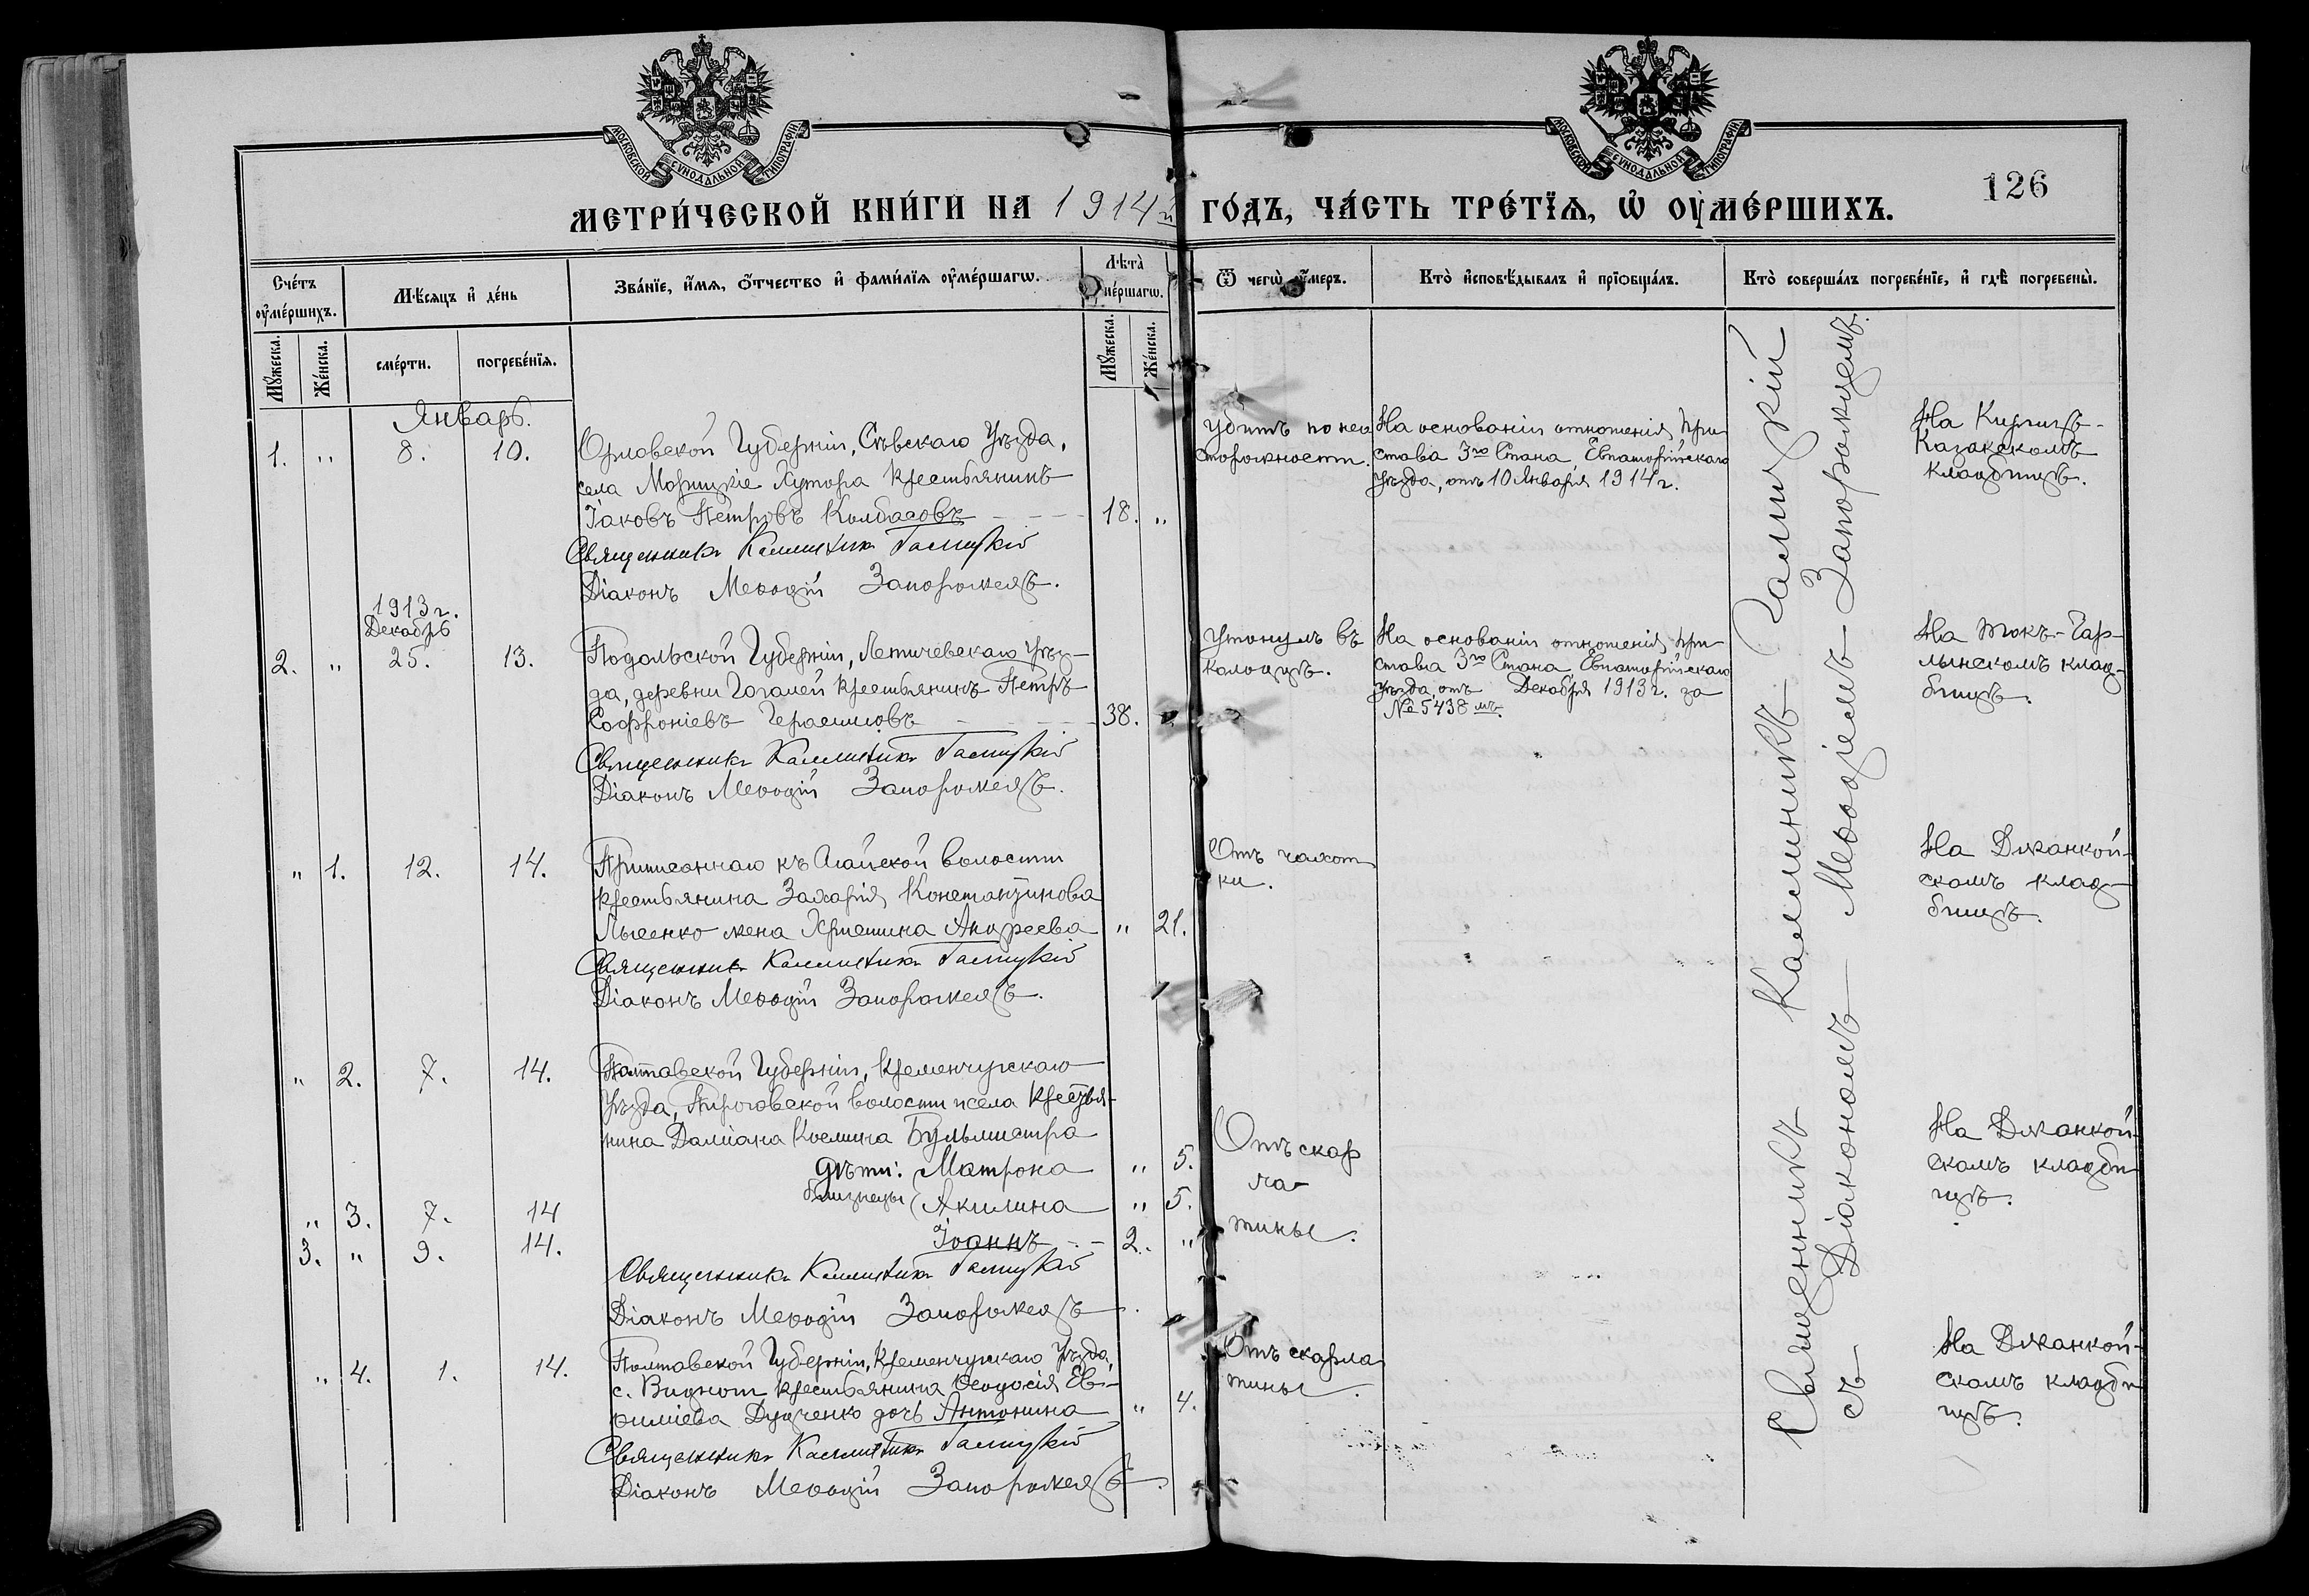 МОСКОВСКОЙ СѴНОДАЛЬНОЙ ТИПОГРАФІИ
МОСКОВСКОЙ СѴНОДАЛЬНОЙ ТИПОГРАФІИ
126
МЕТРИ́ЧЕСКОЙ КНИ́ГИ НА 1914й ГО́ДЪ, ЧА́СТЬ ТРЕ́ТЇѦ, Ѡ҆ ОУ҆МЕ́РШИХЪ.
Сче́тъ оу҆ме́ршихъ.
Мѣ́сяцъ и҆ де́нь
Зва́нїе, и҆́мѧ, ѻ҆́тчество и҆ фами́лїѧ оу҆ме́ршагѡ.
Лѣ́та оу҆ме́ршагѡ.
Ѿ чегѡ̀ оу҆́меръ.
Кто̀ и҆сповѣ́дывалъ и҆ прїѻбща́лъ.
Кто̀ соверша́лъ погребе́нїе, и҆ гдѣ̀ погребены̀.
Мꙋ́жеска.
Же́нска.
сме́рти.
погребе́нїѧ.
Мꙋ́жеска.
Же́нска.
Январь.
1. " 8. 10.
Орловской Губерніи, Сѣвскаго Уѣзда,
села Морицкіе Хутора крестьянинъ
Іаковъ Петровъ Колбасовъ 18. "
Священникъ Каллиникъ Галицкій
Діаконъ Меѳодій Запорожецъ.
Убитъ по нео
сторожности.
На основаніи отношенія при
става 3го Стана Евпаторійскаго
уѣзда, отъ 10 Января 1914 г.
На Киргизъ-
Казакскомъ
кладбищѣ.
1913 г.
Декабрь
2. " 25. 13.
Подольской Губерніи, Летичевскаго Уѣз-
да, деревни Гогалей крестьянинъ Петръ
Софроніевъ Герасимовъ 38. "
Священникъ Каллиникъ Галицкій
Діаконъ Меѳодій Запорожецъ.
Утонулъ въ
колодцѣ.
На основаніи отношенія при
става 3го Стана Евпаторійскаго
уѣзда, отъ Декабря 1913 г. за
№ 5438 мъ.
На Токъ-Чар-
лынскомъ клад-
бищѣ.
" 1. 12. 14.
Приписаннаго къ Агайской волости
крестьянина Захарія Константинова
Лысенко жена Христина Андреева " 21.
Священникъ Каллиникъ Галицкій
Діаконъ Меѳодій Запорожецъ.
Отъ чахот
ки.
На Джанкой-
скомъ клад-
бищѣ.
" 2. 7. 14.
Полтавской Губерніи, Кременчугскаго
Уѣзда, Пироговской волости и села крестья-
нина Даміана Косьмина Бульмистра
дѣти: Матрона " 5.
" 3. 7. 14
близнецы (Акилина " 5.
3. " 9. 14.
Іоаннъ 2. "
Священникъ Каллиникъ Галицкій
Діаконъ Меѳодій Запорожецъ.
Отъ скар
ла-
тины.
На Джанкой-
скомъ кладби
щѣ.
" 4. 1. 14.
Полтавской Губерніи, Кременчугскаго Уѣзда,
крестьянина Ѳеодосія Ев-
фиміева дочь Антонина " 4.
Священникъ Каллиникъ Галицкій
Діаконъ Меѳодій Запорожецъ.
Отъ скарла
тины.
На Джанкой-
скомъ кладби
щѣ.
Священникъ Каллиникъ Галицкій
съ Діакономъ Меѳодіемъ Запорожцемъ.